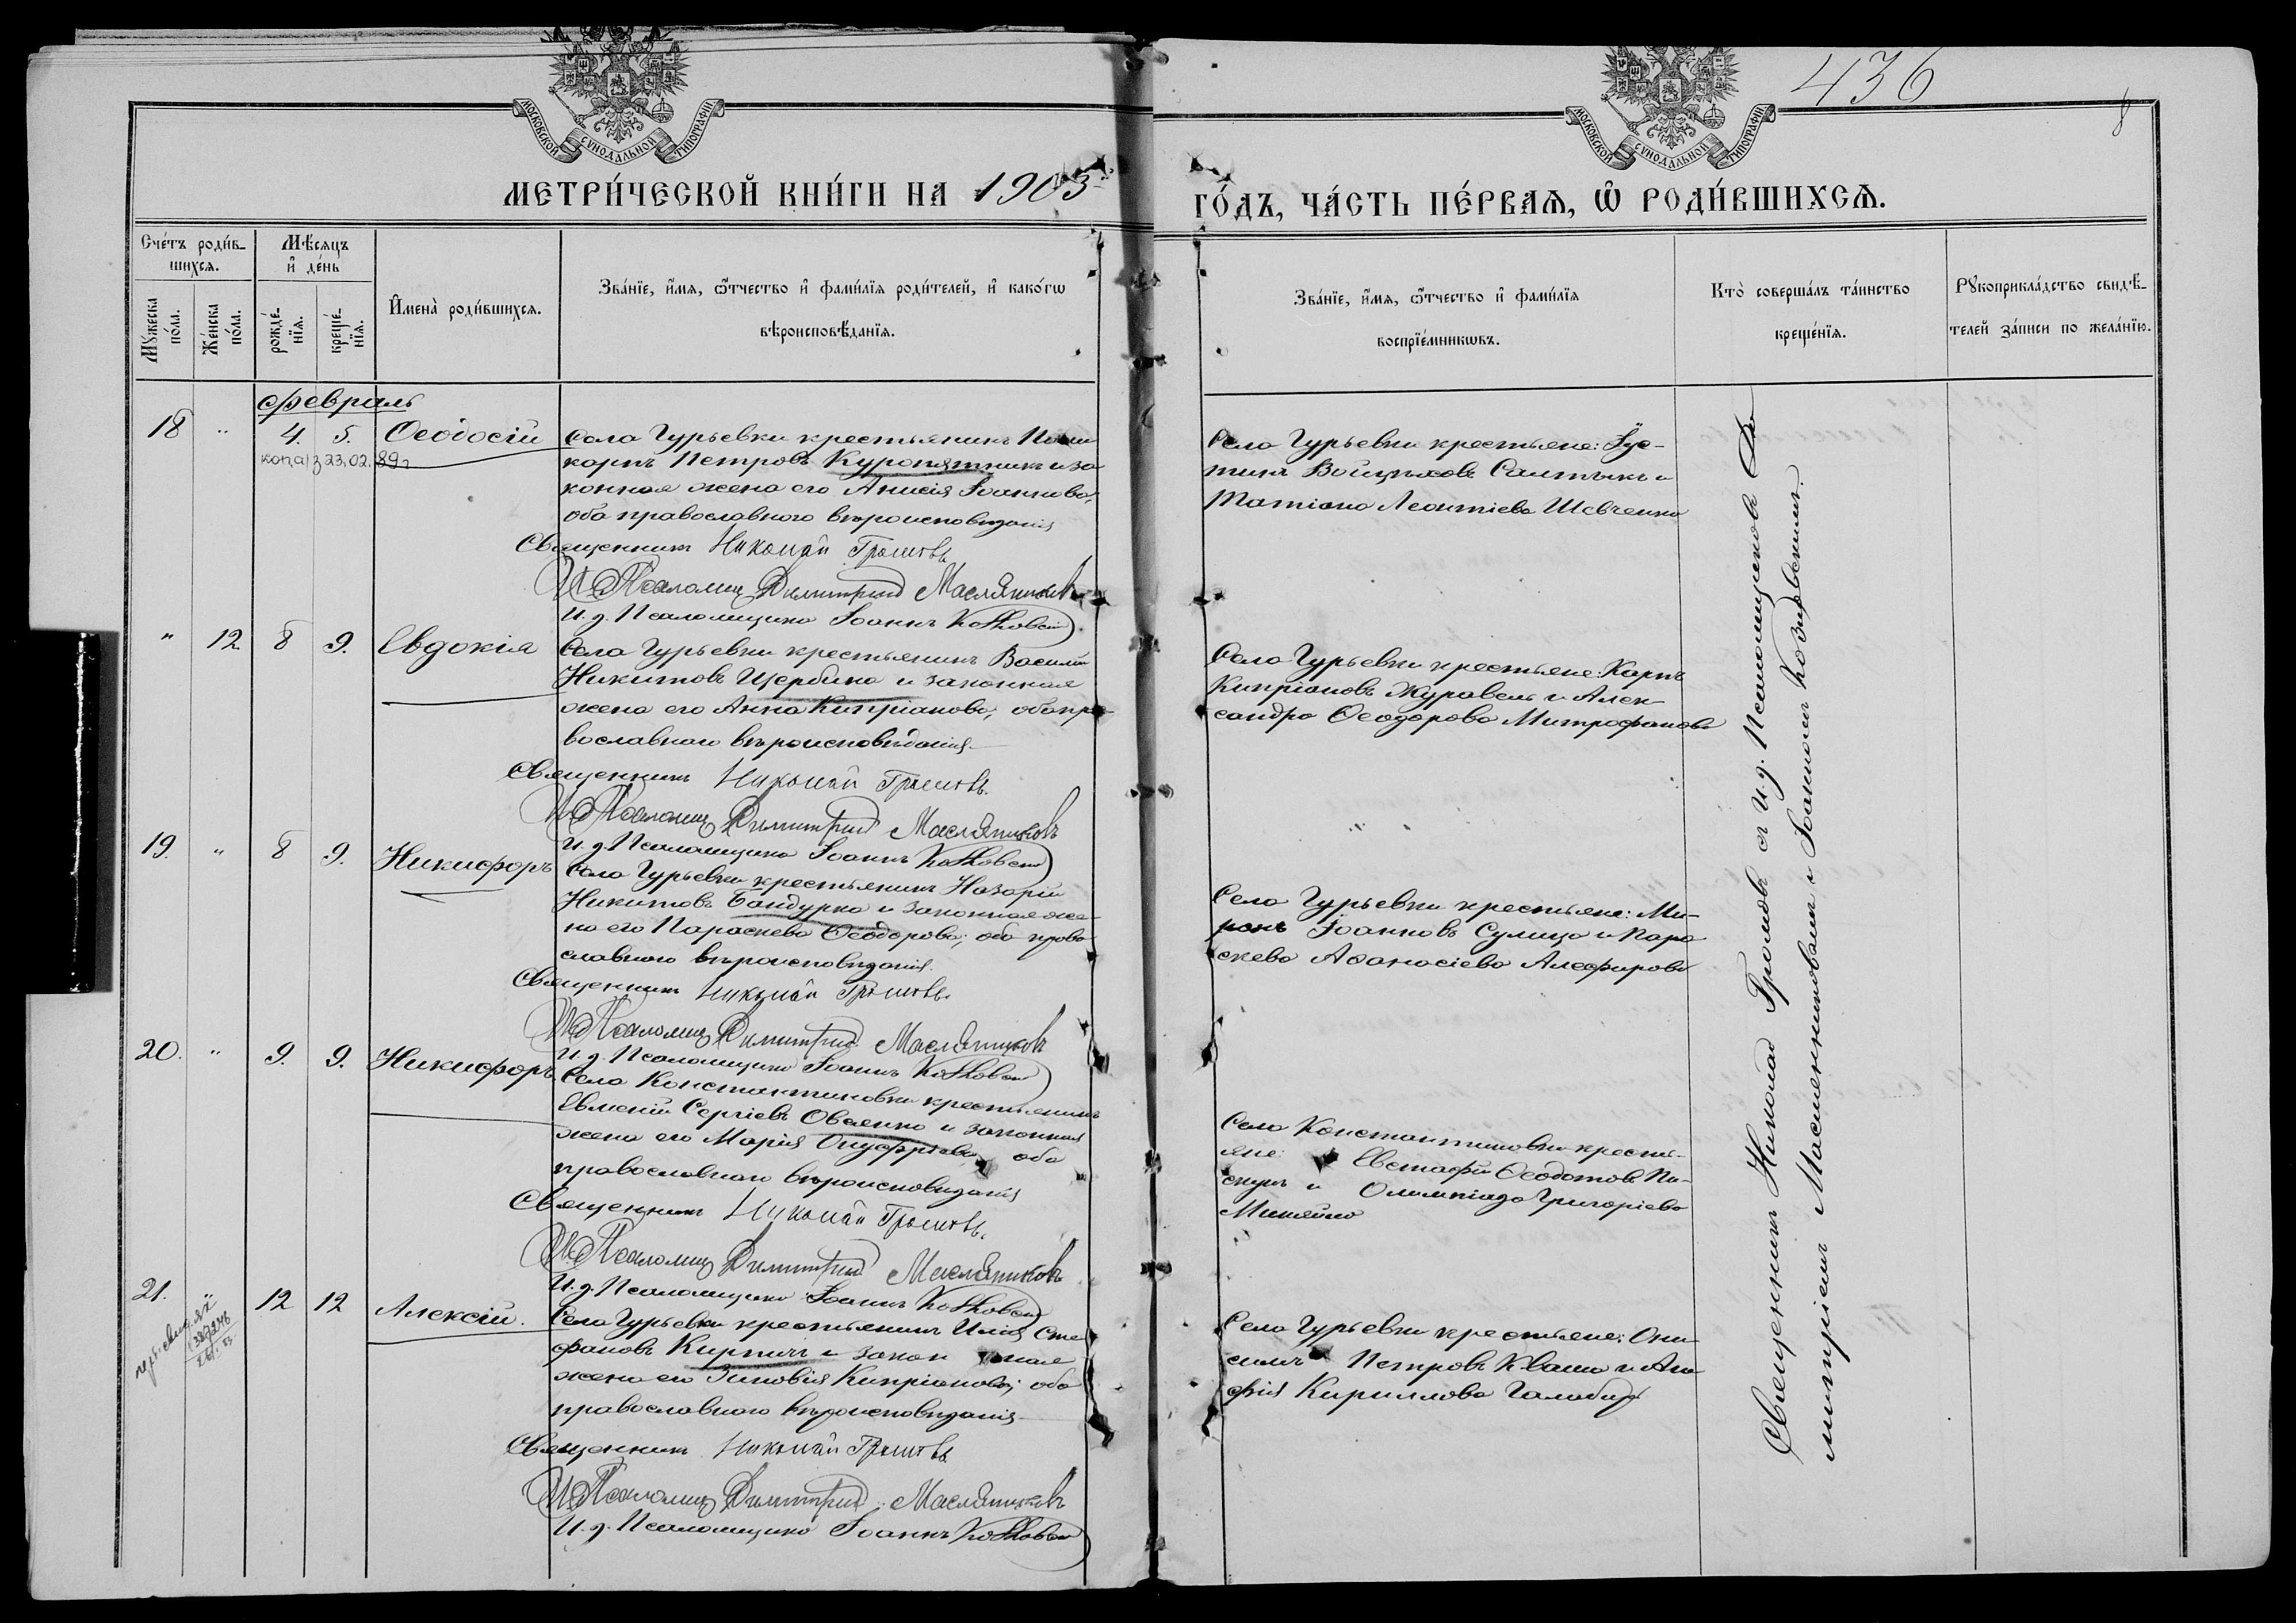 436
8
МОСКОВСКОЙ СУНОДАЛЬНОЙ ТИПОГРАФІИ
МОСКОВСКОЙ СУНОДАЛЬНОЙ ТИПОГРАФІИ
МЕТРИ́ЧЕСКОЙ КНИ́ГИ НА 1903
ГО́ДЪ, ЧА́СТЬ ПЕ́РВАЯ, Ѡ РОДИ́ВШИХСЯ.
Сче́тъ роди́вшихся.
Мꙋ́жеска по́ла.
Же́нска по́ла.
Мѣ́сяцъ и де́нь
рожде́нїя.
креще́нїя.
Имена̀ роди́вшихся.
Зва́нїе, и́мя, ѻ́тчество и фами́лїя роди́телей, и како́гѡ
вѣроисповѣ́данїя.
Зва́нїе, и́мя, ѻ́тчество и фами́лїя
воспрїе́мникѡвъ.
Кто̀ соверша́лъ та́инство
креще́нїя.
Рꙋкоприкла́дство свидѣ́-
телей за́писи по жела́нїю.
Февраль
18 " 4. 5. Ѳеодосій
коп. а/з 23.02.89г
Села Гурьевки крестьянинъ Поли
карпъ Петровъ Куропятникъ и за
конная жена его Анисія Іоаннова,
оба православнаго вѣроисповѣданія
Священникъ Николай Громовъ
И.д. Псаломщ. Димитрий Маслянниковъ
И. д. Псаломщика Іоаннъ
Села Гурьевки крестьяне: Іус-
тинъ Войцѣховъ Салтыкъ и
Татіана Леонтіева Шевченко
" 12 8 9. Евдокія
Села Гурьевки крестьянинъ Василій
Никитовъ Щербина и законная
жена его Анна Кипріанова, оба пра
вославнаго вѣроисповѣданія
Священникъ Николай Громовъ.
И.д. Псаломщ. Димитрий Маслянниковъ
И. д. Псаломщика Іоаннъ
Села Гурьевки крестьяне: Карпъ
Кипріановъ Журавель и Алек-
сандра Ѳеодорова Митрофанова
19. " 8 9. Никифоръ
Села Гурьевки крестьянинъ Назарій
Никитовъ Бандурка и законная же-
на его Параскева Ѳеодорова, оба право
славнаго вѣроисповѣданія.
Священникъ Николай Громовъ.
И.д. Псаломщ. Димитрий Маслянниковъ
И. д. Псаломщика Іоаннъ
Села Гурьевки крестьяне: Ми-
ронъ Іоанновъ Сулица и Пара
скева Аѳанасіева Алефирова
20. " 9. 9. Никифоръ
Села Константиновки крестьянинъ
Евменій Сергіевъ Овсянко и законная
жена его Марія Онуфріева, оба
православнаго вѣроисповѣданія
Священникъ Николай Громовъ.
И.д. Псаломщ. Димитрий Маслянниковъ
И. д. Псаломщика Іоаннъ
Села Константиновки крестья-
яне: Евстафій Ѳеодотовъ Пи-
скунъ и Олимпіада Григоріева
21. " 12 12 Алексій.
Села Гурьевки крестьянинъ Илія Сте
фановъ Кирпичъ и закон ная
жена его Зиновія Кипріанова, оба
православнаго вѣроисповѣданія
Священникъ Николай Громовъ
И.д. Псаломщ. Димитрий Маслянниковъ
И. д. Псаломщика Іоаннъ
Села Гурьевки крестьяне: Они
симъ Петровъ Кваша и Ага
фія Кириллова
Священникъ Николай Громовъ съ и. д. Псаломщиковъ Ди
митріемъ Маслянниковымъ и Іоанномъ